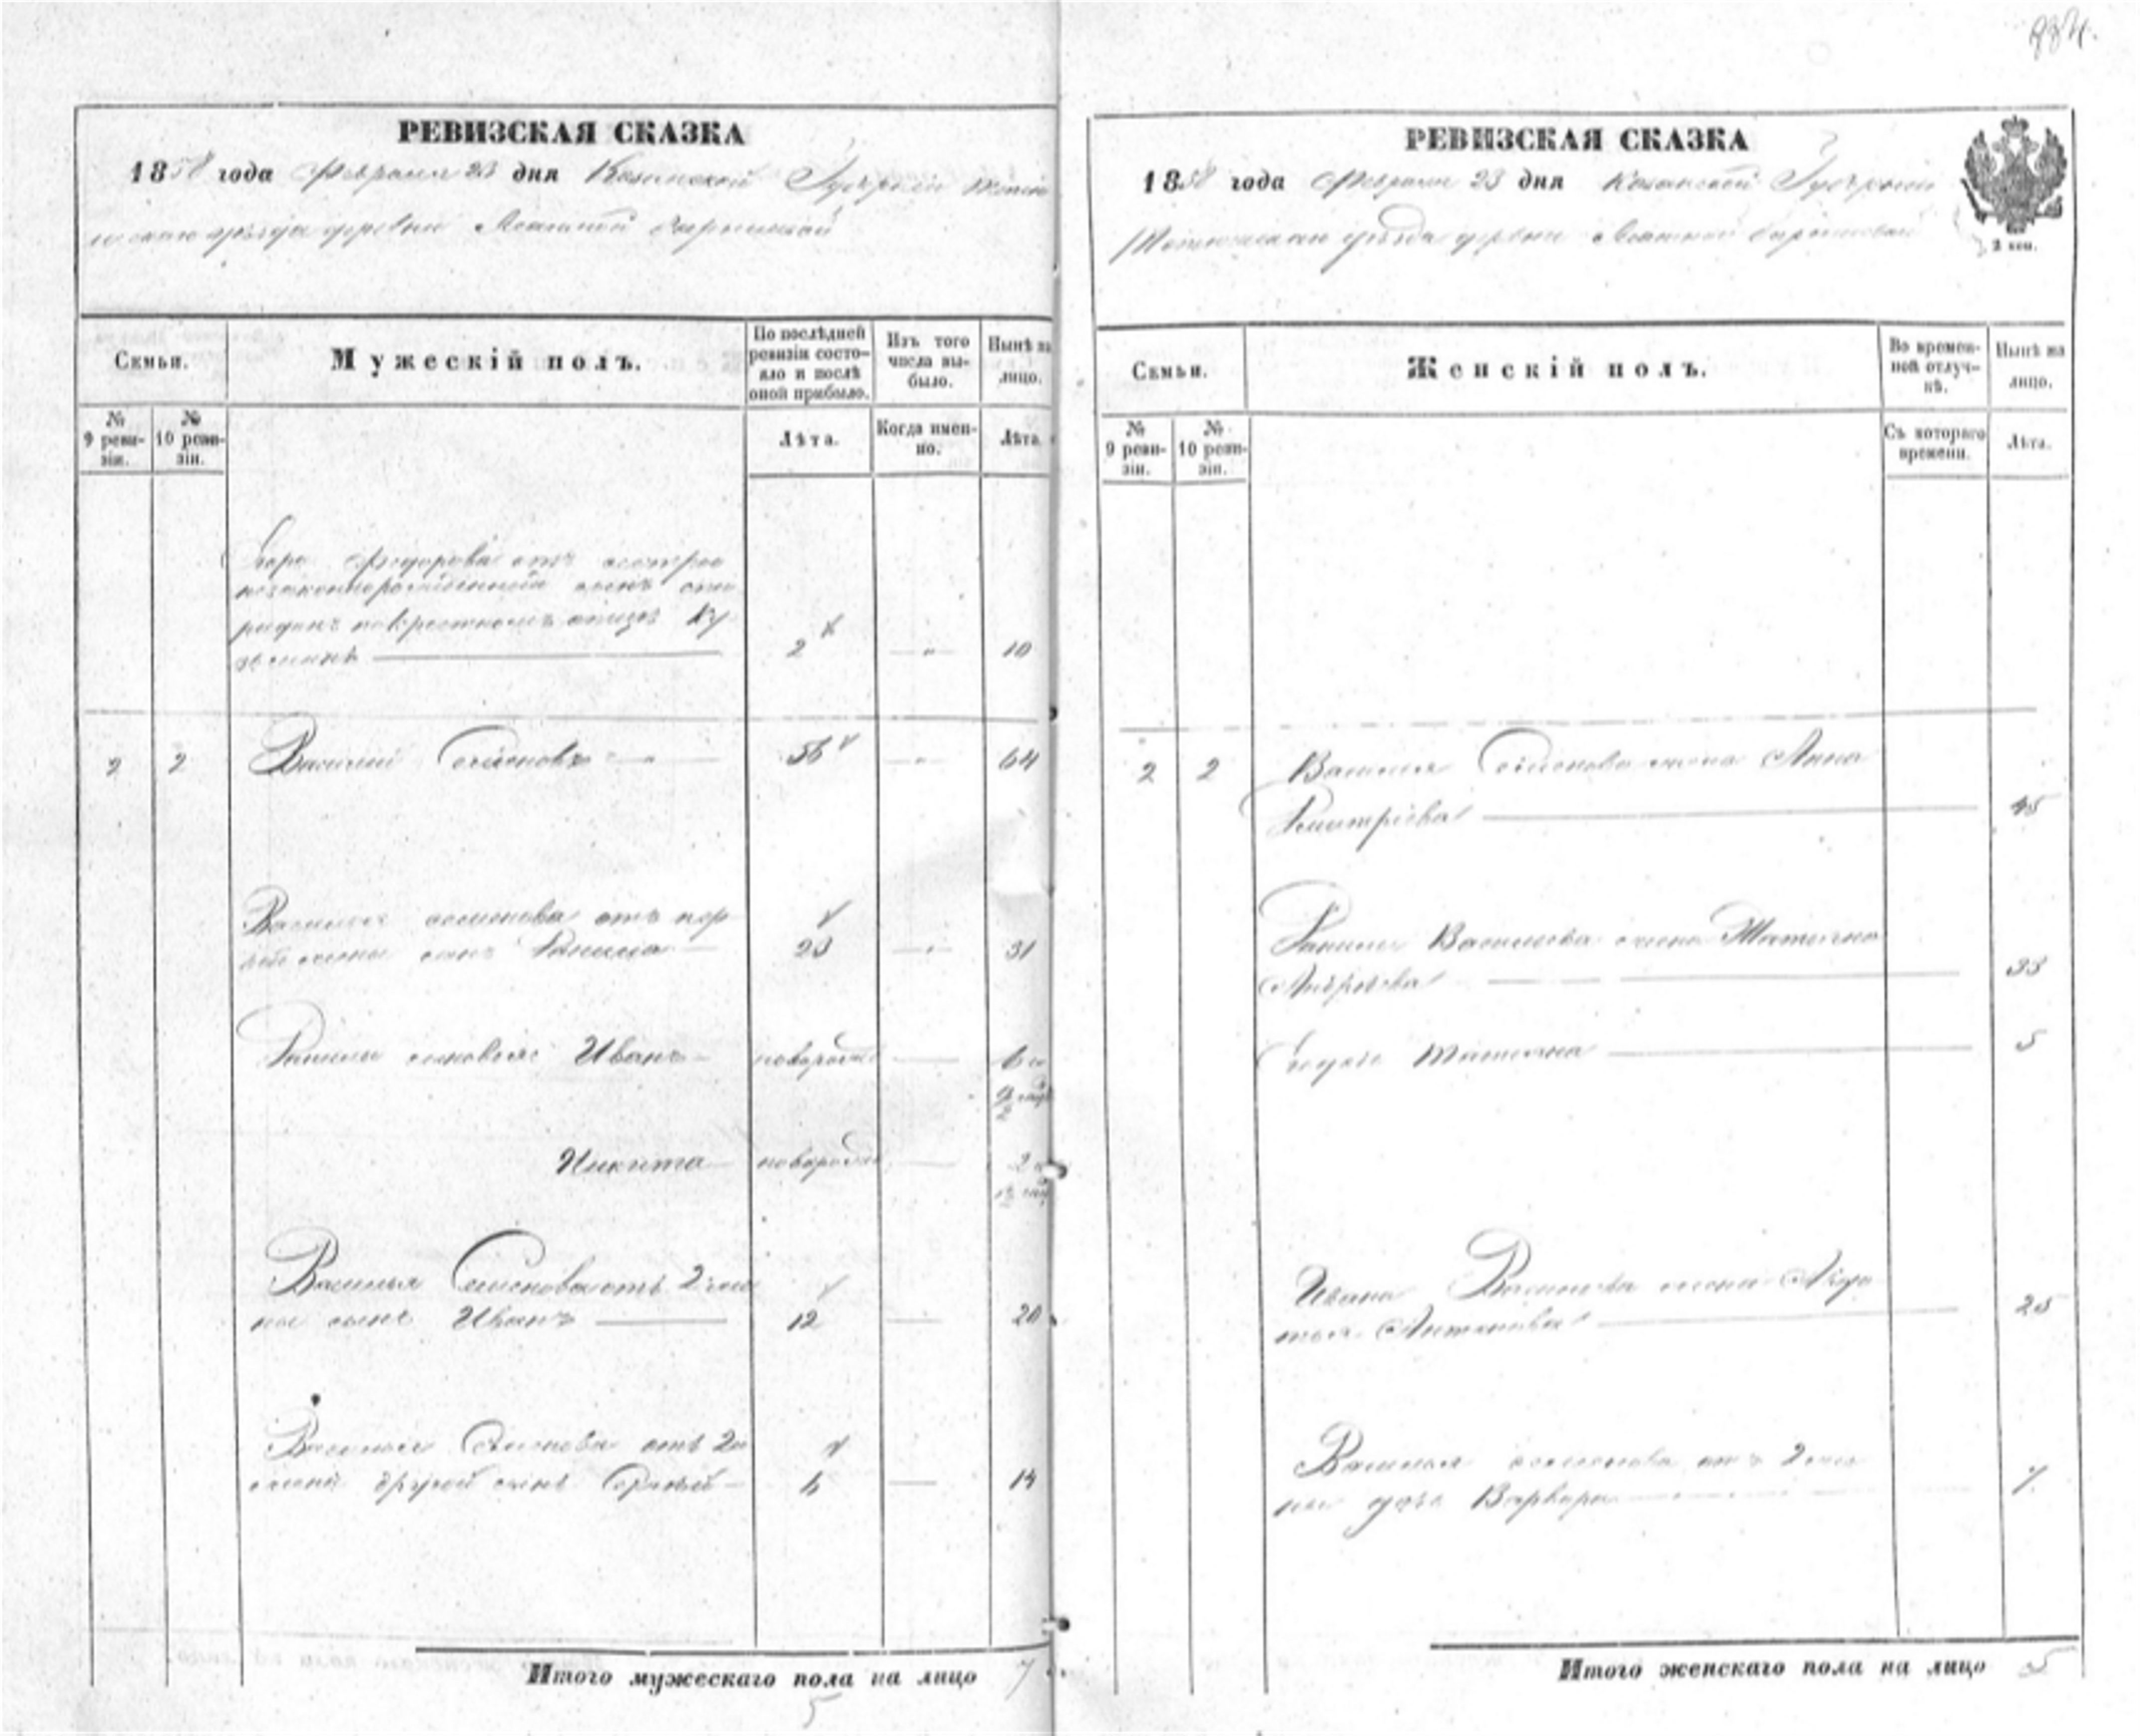 РЕВИЗСКАЯ СКАЗКА
1858 года Февраля 23 дня Казанской Губернiи
уѣзда деревни
Семьи.
Мужескiй полъ.
По послѣдней
ревизiи состо-
яло и послѣ
оной прибыло.
Изъ того
числа вы-
было.
Нынѣ на
лицо.
№
9 реви-
зiи.
№
10 реви-
зiи.
Лѣта.
Когда имен-
но.
Лѣта.
Федорова отъ сестры
незаконнорожденный сынъ
по крестномъ отцѣ Ку-
2 10
2 2 Василiй Семеновъ 56 64
Василья Семенова отъ пер-
вой жены сынъ Данила 23 31
Данилы сыновья: Иванъ новорожд
Никита новорожд
Василья Семенова отъ 2 же-
ны сынъ Иванъ 12 20
Василья Семенова отъ 2й
жены другой сынъ 6 14
Итого мужескаго пола на лицо 7
5
РЕВИЗСКАЯ СКАЗКА
1858 года Февраля 23 дня Казанской Губернiи
уѣзда деревни
2 коп.
Семьи.
Женскiй полъ.
Во времен-
ной отлуч-
кѣ.
Нынѣ на
лицо.
№
9 реви-
зiи.
№
10 реви-
зiи.
Съ котораго
времени.
Лѣта.
2 2 Василья Семенова жена Анна
Дмитрiева 45
Данилы Васильева жена Татьяна
Андрѣева 33
дочь Татьяна 5
Ивана Васильева жена
Антонова 25
Василья Семенова отъ 2 же-
ны дочь Варвара 7
Итого женскаго пола на лицо 5